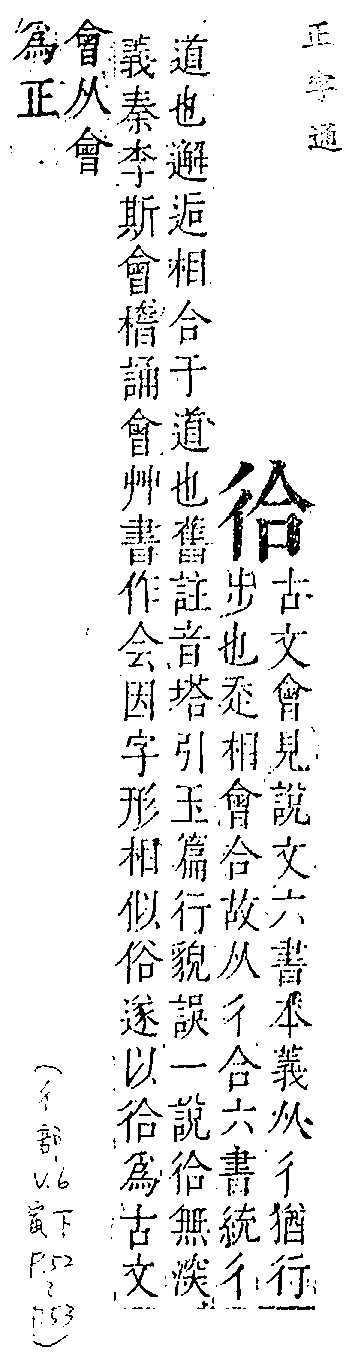 正字通
㣛
古文會見說文六書本義从彳猶行
步也辵相會合故从彳合六書統彳
道也邂逅相合于道也舊註音塔引玉篇行貌誤一說㣛無深
義秦李斯會稽誦會艸書作会因字形相似俗遂以㣛爲古文
會从會
爲正
(彳部
V.6
寅下
P.52
~
P.53)